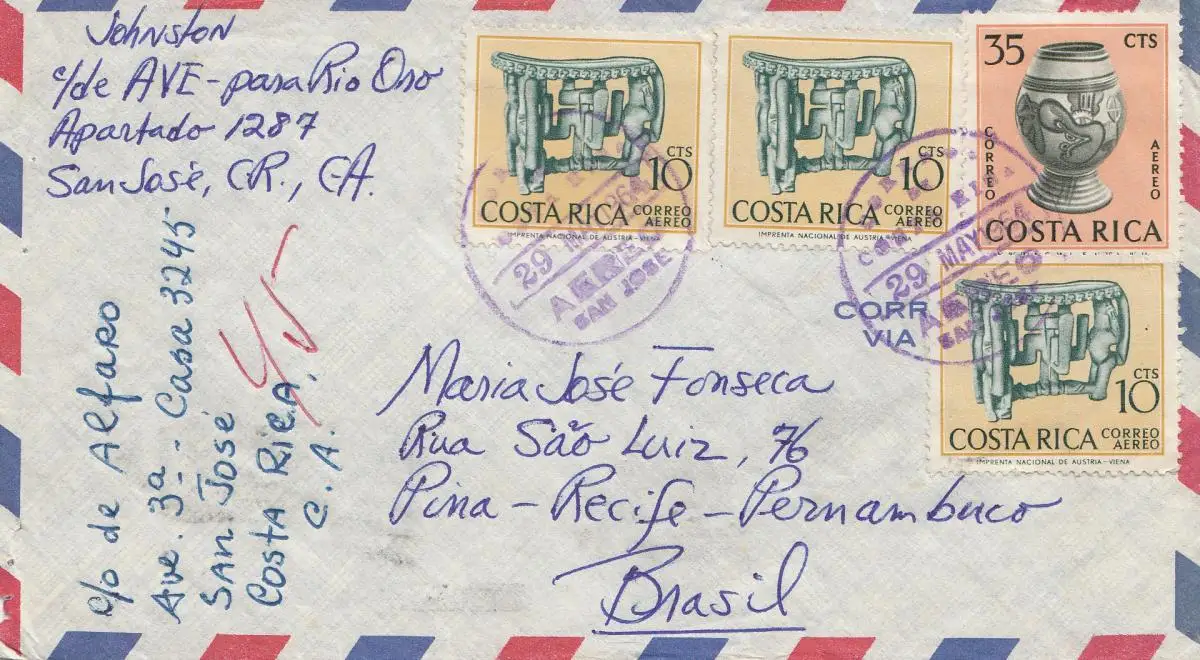 Johnston
c/de AVE - para Rio Oro
Apartado 1287
San José, C.R., C.A.
c/o de Alfaro
Ave. 3ª - Casa 3245
San José
Costa Rica.
C. A.
10 CTS
COSTA RICA CORREO AEREO
IMPRENTA NACIONAL DE AUSTRIA - VIENA
10 CTS
COSTA RICA CORREO AEREO
IMPRENTA NACIONAL DE AUSTRIA - VIENA
35 CTS
CORREO AEREO
COSTA RICA
10 CTS
COSTA RICA CORREO AEREO
IMPRENTA NACIONAL DE AUSTRIA - VIENA
29 MAY 1964
AEREO
SAN JOSE
29 MAY 1964
AEREO
SAN JOSE
CORR
VIA
Maria José Fonseca
Rua São Luiz, 76
Pina - Recife - Pernambuco
Brasil